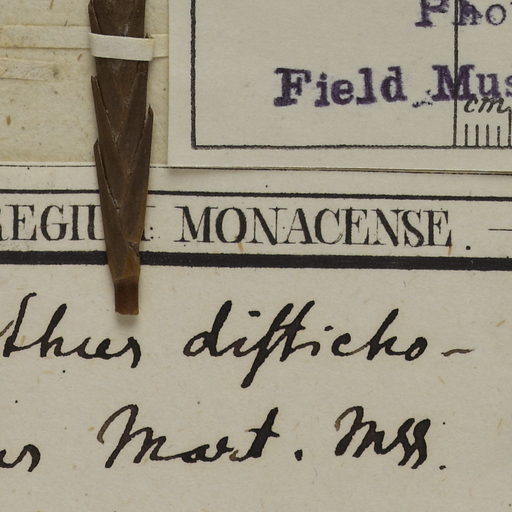 Pho
Field Mus
cm
REGIUM MONACENSE.
thus disticho-
us Mart. Mss.